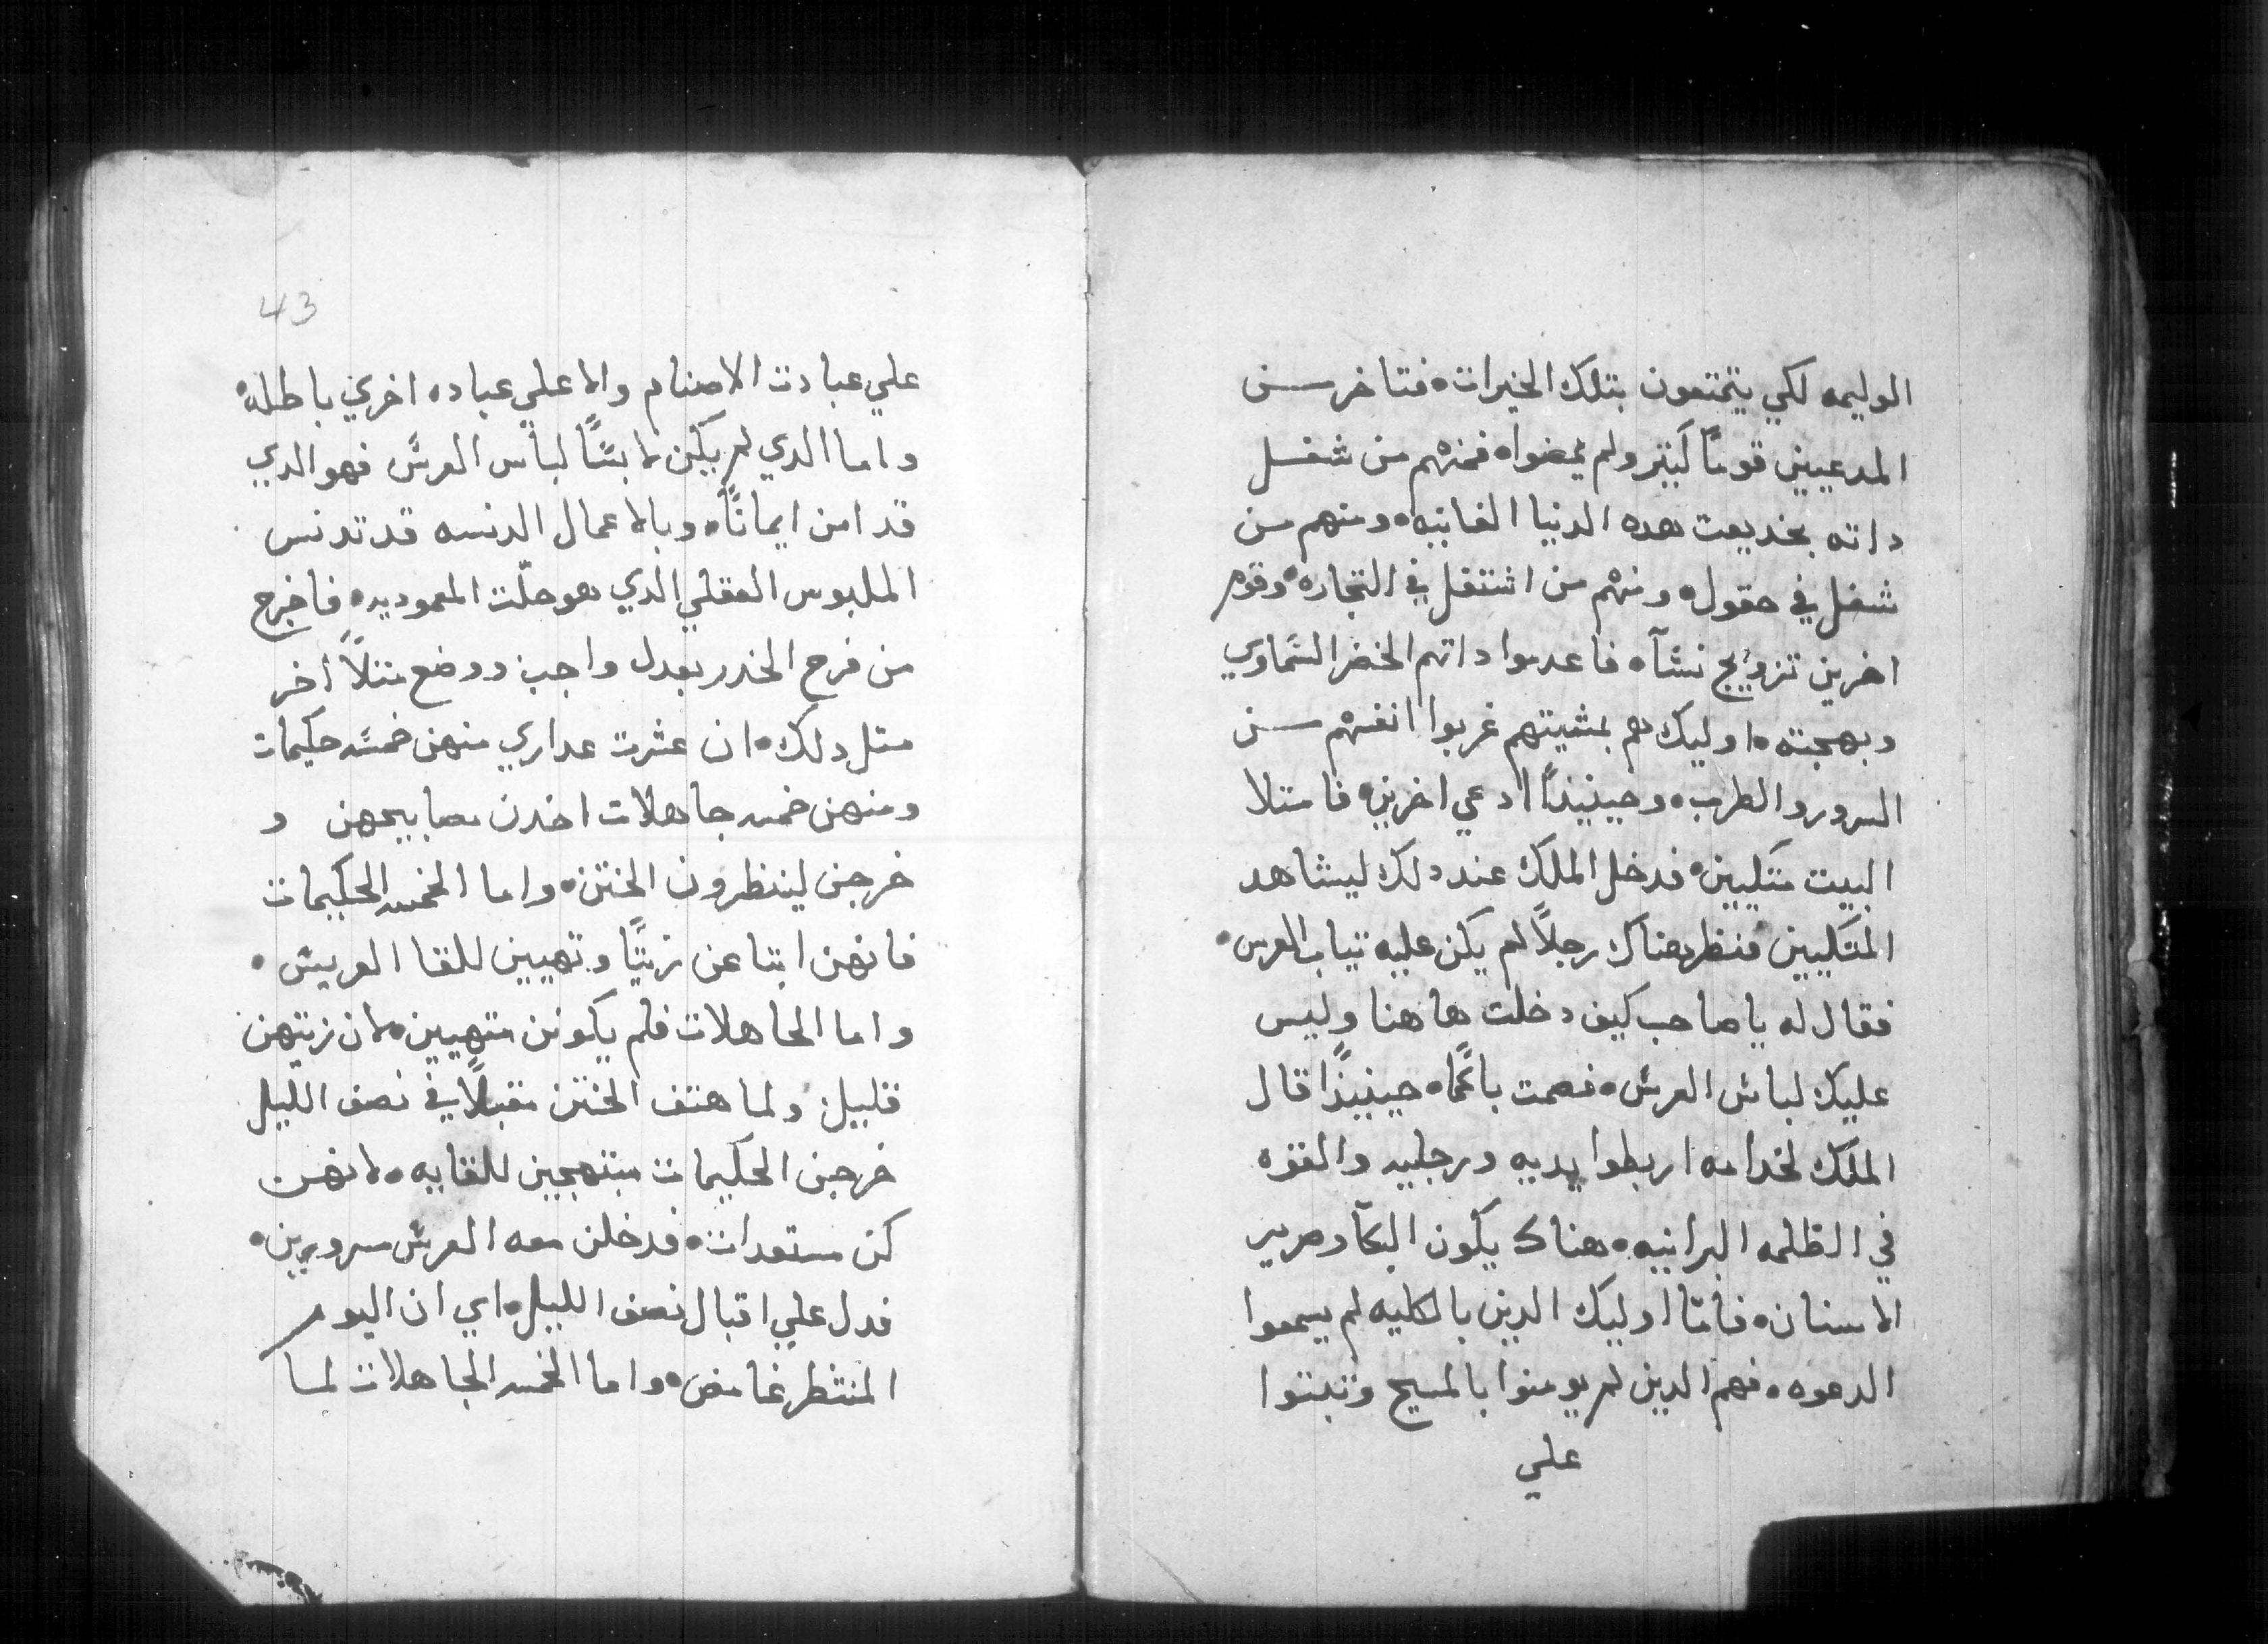 الوليمه لكي يتمتعون بتلك الخيرات ٥ فتاخر من
المدعيين قوماً كتير ولم يمضوا ٥ فمنهم من شغل
داته بخديعت هده الدنيا الفانيه ٥ ومنهم من
شغل في حقول ٥ ومنهم من اشتغل في التجاره ٥ وقوم
اخرين تزويج نسآ ٥ فاعدموا داتهم الخضر السماوي
وبهجته ٥ اوليك هم بمشيتهم غربوا انفسهم من
السرور والطرب ٥ وحينيدًا ادعي اخرين ٥ فامتلا
البيت متكيين ٥ فدخل الملك عند دلك ليشاهد
المتكيين فنظر هناك رجلاً لم يكن عليه تياب العرس ٥
فقال له يا صاحب كيف دخلت هاهنا وليس
عليك لباس العرس ٥ فصمت باكمًا ٥ حينيذًا قال
الملك لخدامه اربطوا يديه ورجليه والقوه
في الظلمه البرانيه ٥ هناك يكون البكآ وصرير
الاسنان ٥ فامّا اوليك الدين بالكليه لم يسمعوا
الدعوه ٥ فهم الدين لم يومنوا بالمسيح وتبتوا
علي
43
علي عبادت الاصنام والا علي عباده اخري باطله ٥
واما الدي لم يكن لابسًا لباس العرس فهو الدي
قد امن ايمانًا ٥ وبالاعمال الدنسه قد تدنس
الملبوس العقلي الدي هو حلّت المعموديه ٥ فاخرج
من فرح الخدر بعدل واجب ووضع متلاً اخر
متل دلك ٥ ان عشرت عداري منهن خمسه حكيمات
ومنهن خمسه جاهلات اخدن مصابيحهن و
خرجن لينظرون الختن ٥ واما الخمسه الحكيمات
فانهن ابتاعن زيتًا وتهيين للقا العريس ٥
واما الجاهلات فلم يكونن متهيين ٥ لان زيتهن
قليل ولما هتف الختن مقبلاً في نصف الليل
خرجن الحكيمات مبتهجين للقايه ٥ لانهن
كن مستعدات ٥ فدخلن معه العرس مسرورين ٥
فدل علي اقبال نصف الليل ٥ اي ان اليوم
المنتظر غامض ٥ واما الخمسه الجاهلات لما